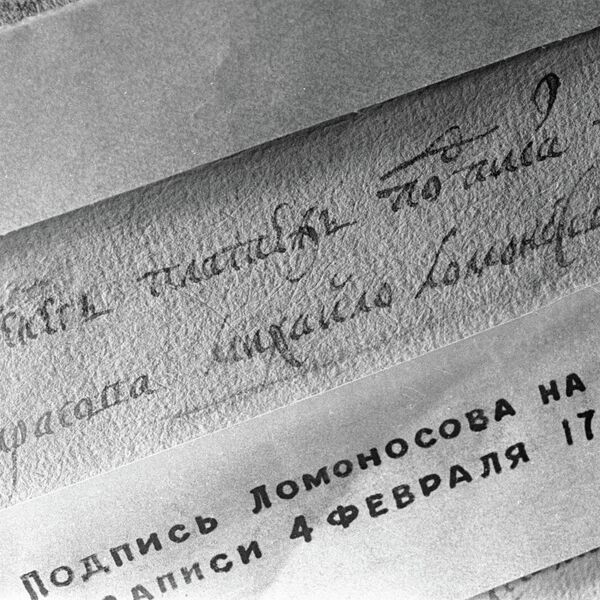 платежъ подписа
михайло Ломоносо
Подпись Ломоносова на
записи 4 февраля 17